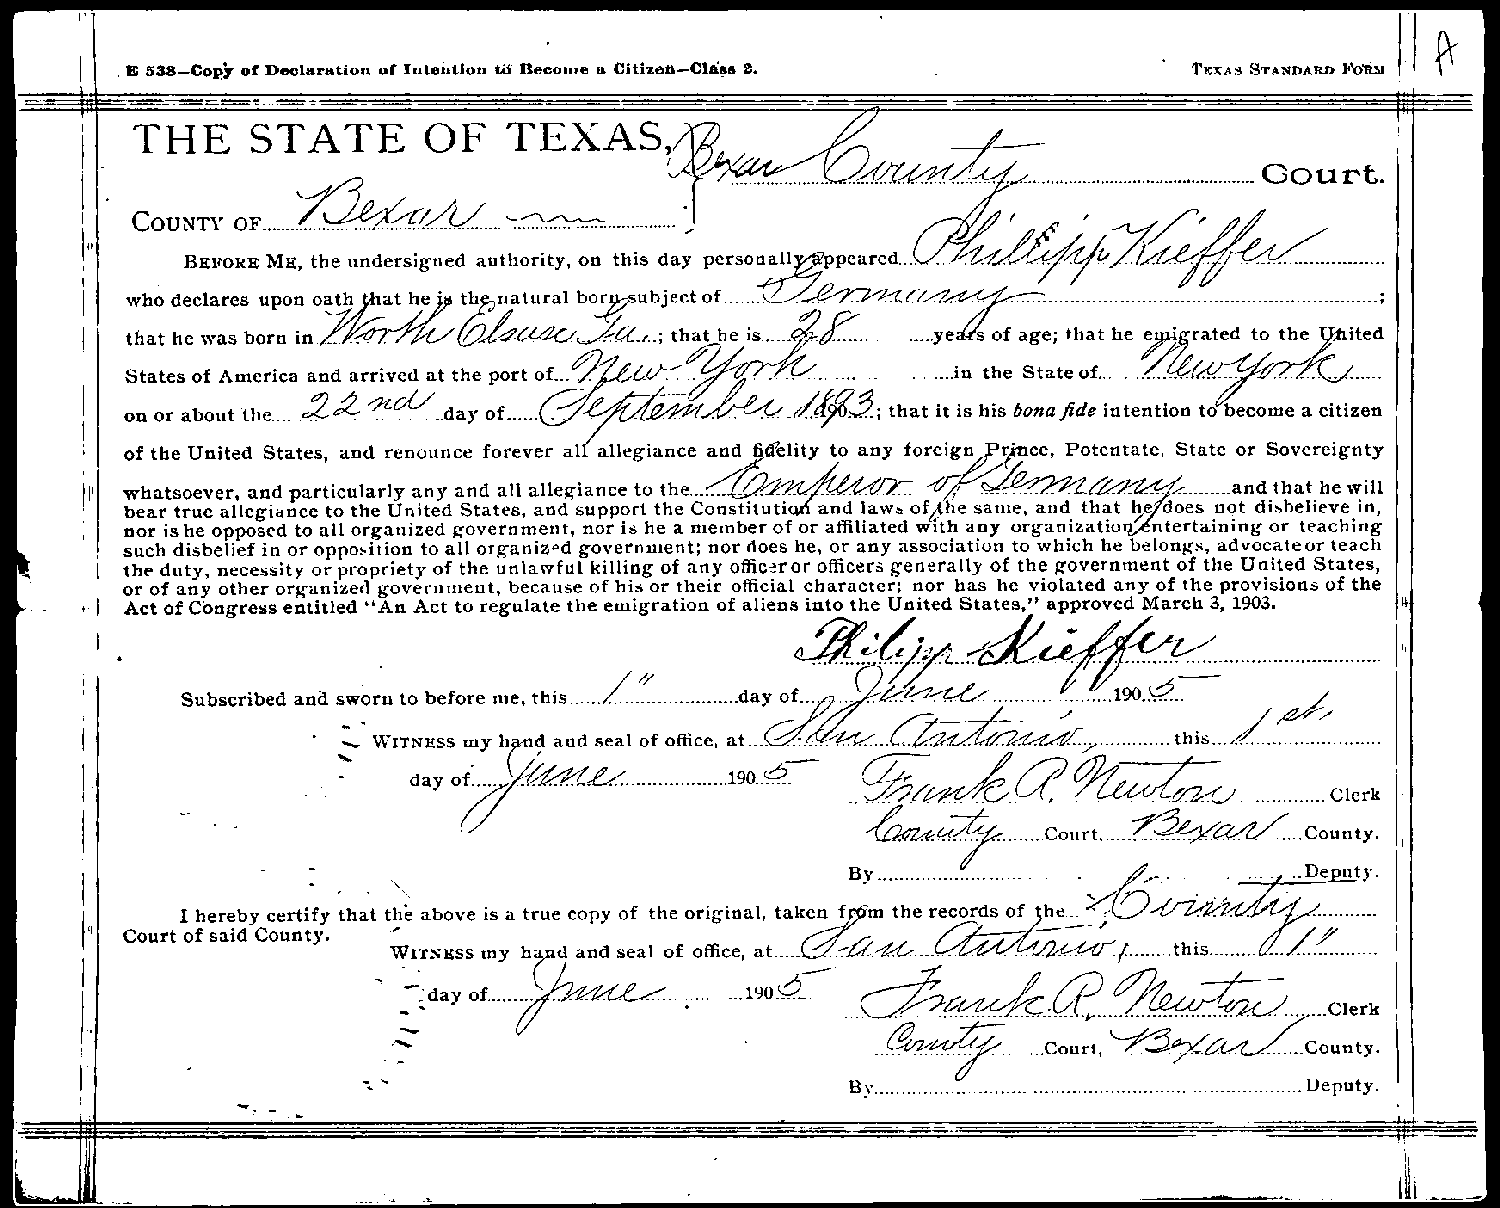 A
E 538—Copy of Declaration of Intention to Become a Citizen—Class 2. TEXAS STANDARD FORM
THE STATE OF TEXAS, Bexar County Court.
COUNTY OF Bexar
BEFORE ME, the undersigned authority, on this day personally appeared Phillipp Kieffer
who declares upon oath that he is the natural born subject of Germany ;
that he was born in Worth Elsase ; that he is 28 years of age; that he emigrated to the United
States of America and arrived at the port of New York in the State of New York
on or about the 22nd day of September 1893; that it is his bona fide intention to become a citizen
of the United States, and renounce forever all allegiance and fidelity to any foreign Prince, Potentate, State or Sovereignty
whatsoever, and particularly any and all allegiance to the Emperor of Germany and that he will
bear true allegiance to the United States, and support the Constitution and laws of the same, and that he does not disbelieve in,
nor is he opposed to all organized government, nor is he a member of or affiliated with any organization entertaining or teaching
such disbelief in or opposition to all organized government; nor does he, or any association to which he belongs, advocate or teach
the duty, necessity or propriety of the unlawful killing of any officer or officers generally of the government of the United States,
or of any other organized government, because of his or their official character; nor has he violated any of the provisions of the
Act of Congress entitled "An Act to regulate the emigration of aliens into the United States," approved March 3, 1903.
Philipp Kieffer
Subscribed and sworn to before me, this 1" day of June 1905
WITNESS my hand and seal of office, at San Antonio, this 1st.
day of June 1905 Frank R. Newton Clerk
County Court, Bexar County.
By Deputy.
I hereby certify that the above is a true copy of the original, taken from the records of the County
Court of said County.
WITNESS my hand and seal of office, at San Antonio, this 1"
day of June 1905 Frank R. Newton Clerk
County Court, Bexar County.
By Deputy.